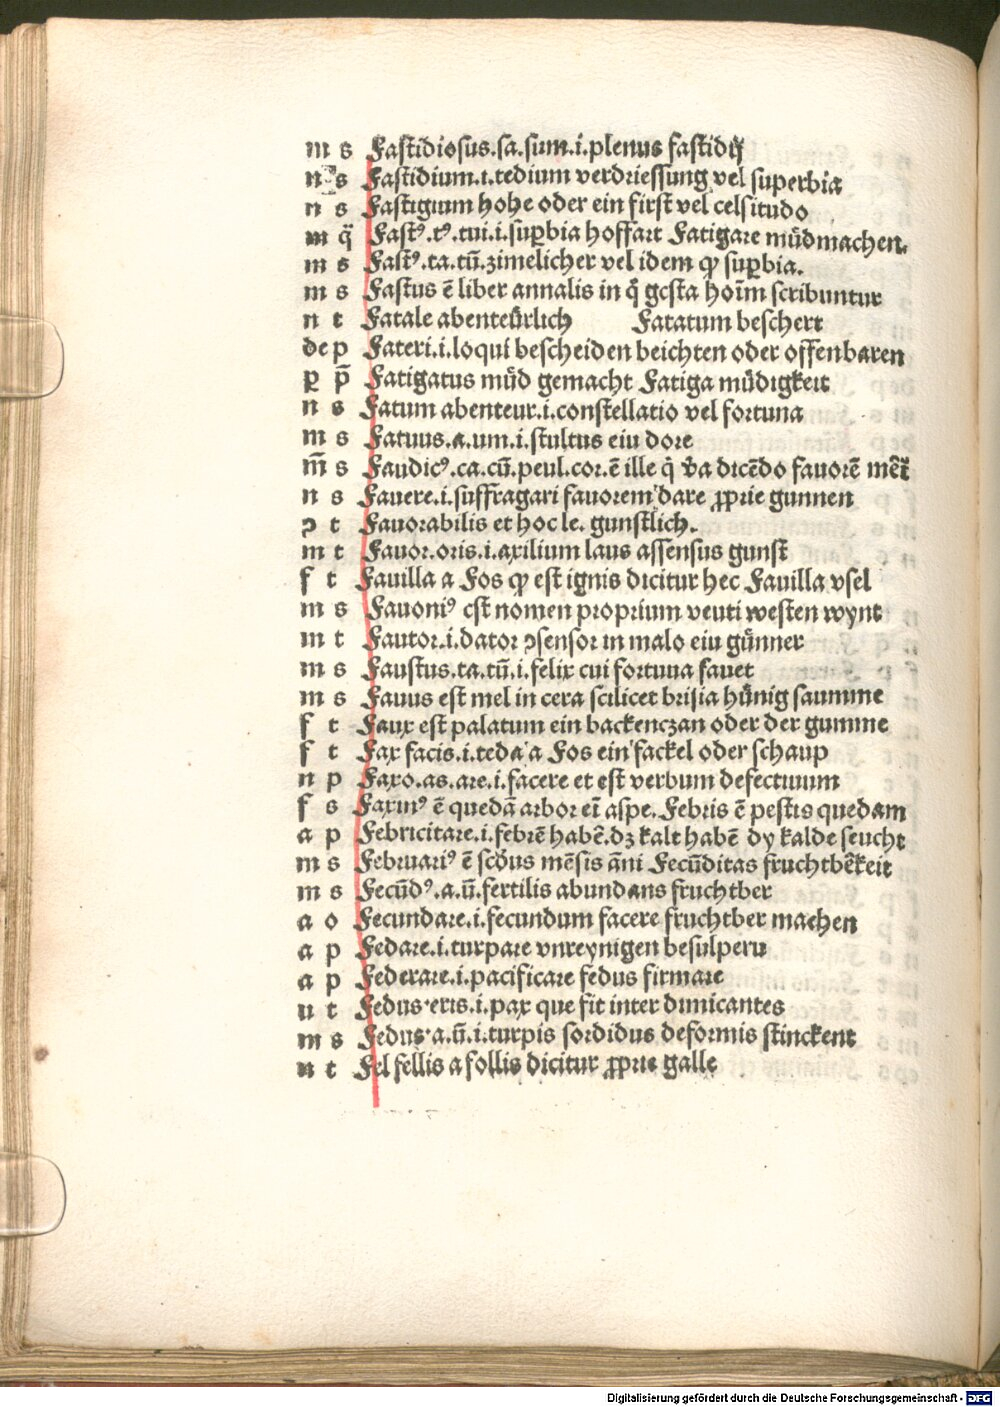 m s Fastidiosus.sa.sum.i.plenus fastidij
n s Fastidium.i.tedium verdriessung vel superbia
n s Fastigium hohe oder ein first vel celsitudo
m q̄ Fastꝰ.tꝰ.tui.i.suꝑbia hoffart Fatigare mu̇dmachen.
m s Fastꝰ.ta.tū.zimelicher vel idem ꝙ suꝑbia.
m s Fastus ē liber annalis in q̄ gesta hoīm scribuntur
n t Fatale abenteu̇rlich Fatatum beschert
de p Fateri.i.loqui bescheiden beichten oder offenbaren
ꝑ p̄ Fatigatus mu̇d gemacht Fatiga mu̇digkeit
n s Fatum abenteur.i.constellatio vel fortuna
m s Fatuus.a.um.i.stultus eiu dore
m̄ s Faudicꝰ.ca.cū.peul.cor.ē ille q̇ v̄a dicēdo fauorē mēt̄
n s Fauere.i.suffragari fauorem dare ꝓprie gunnen
ɔ t Fauorabilis et hoc le. gunstlich.
m t Fauor.oris.i.axilium laus assensus gunst
f t Fauilla a Fos ꝙ est ignis dicitur hec Fauilla vsel
m s Fauoniꝰ est nomen proprium veuti westen wynt
m t Fautor.i.dator ɔsensor in malo eiu gu̇nner
m s Faustus.ta.tū.i.felix cui fortuna fauet
m s Fauus est mel in cera scilicet brisia hu̇nig saumme
f t Faux est palatum ein backenczan oder der gumme
f t Fax facis.i.teda a Fos ein fackel oder schaup
n p Faxo.as.are.i.facere et est verbum defectiuum
f s Faxinꝰ ē quedā arbor eī aspe. Febris ē pestis quedam
a p Febricitare.i.febrē habē.dz kalt habē dy kalde seucht
m s Februariꝰ ē scd̄us mēsis āni Fecūditas fruchtbēkeit
m s Fecūdꝰ.a.ū.fertilis abundans fruchtber
a o Fecundare.i.fecundum facere fruchtber machen
a p Fedare.i.turpare vnreynigen besulperu
a p Federare.i.pacificare fedus firmare
n t Fedus.eris.i.pax que fit inter dimicantes
m s Fedus.a.ū.i.turpis sordidus deformis stinckent
n t Fel fellis a follis dicitur ꝓprie galle
Digitalisierung gefördert durch die Deutsche Forschungsgemeinschaft - DFG